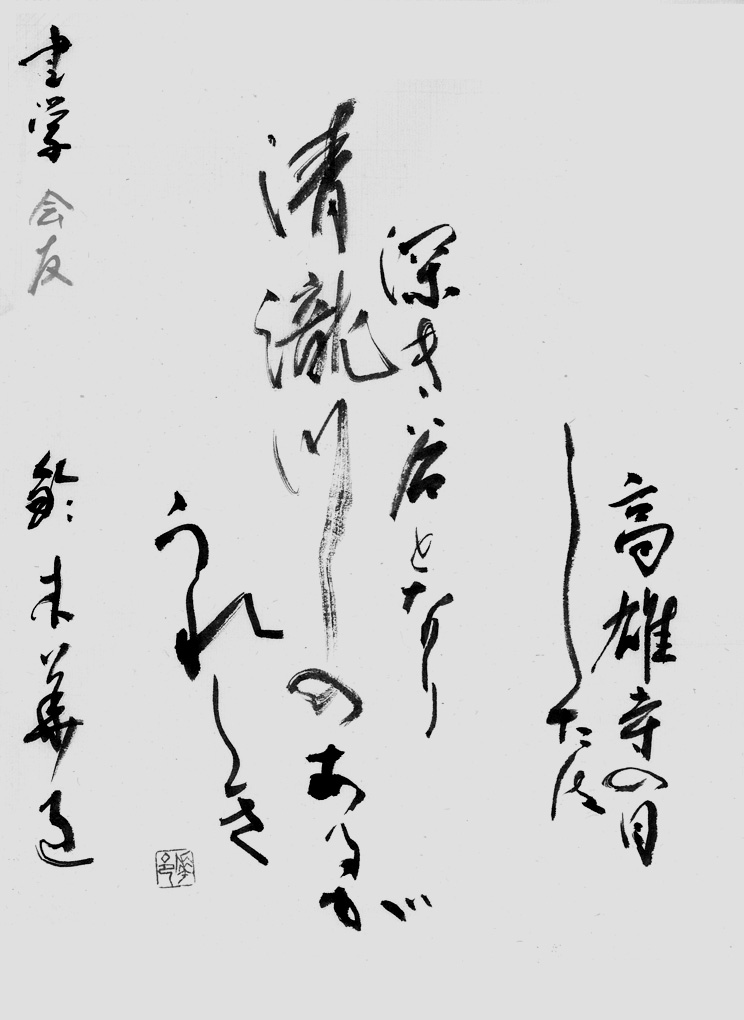 高雄寺の目
したは
深き谷となり
清瀧川のあるが
うれしき
書学 会友 鈴木華邑